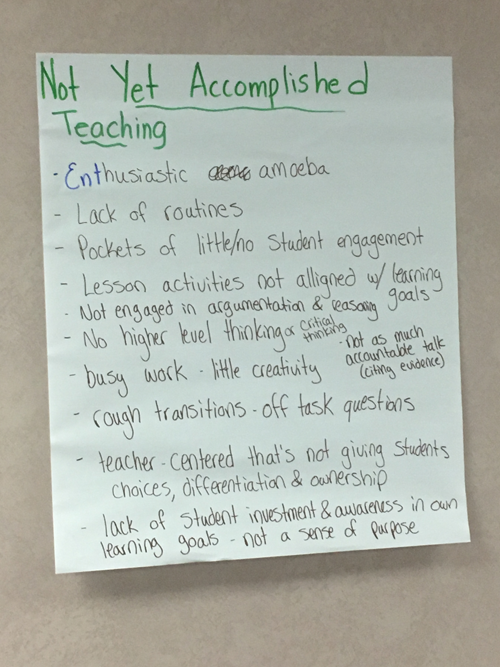 Not Yet Accomplished
Teaching
- Enthusiastic amoeba
- Lack of routines
- Pockets of little/no student engagement
- Lesson activities not alligned w/ learning
goals
- Not engaged in argumentation & reasoning
- No higher level thinking or critical
thinking
- not as much
accountable talk
(citing evidence)
- busy work - little creativity
- rough transitions - off task questions
- teacher-centered that's not giving students
choices, differentiation & ownership
- lack of student investment & awareness in own
learning goals - not a sense of purpose